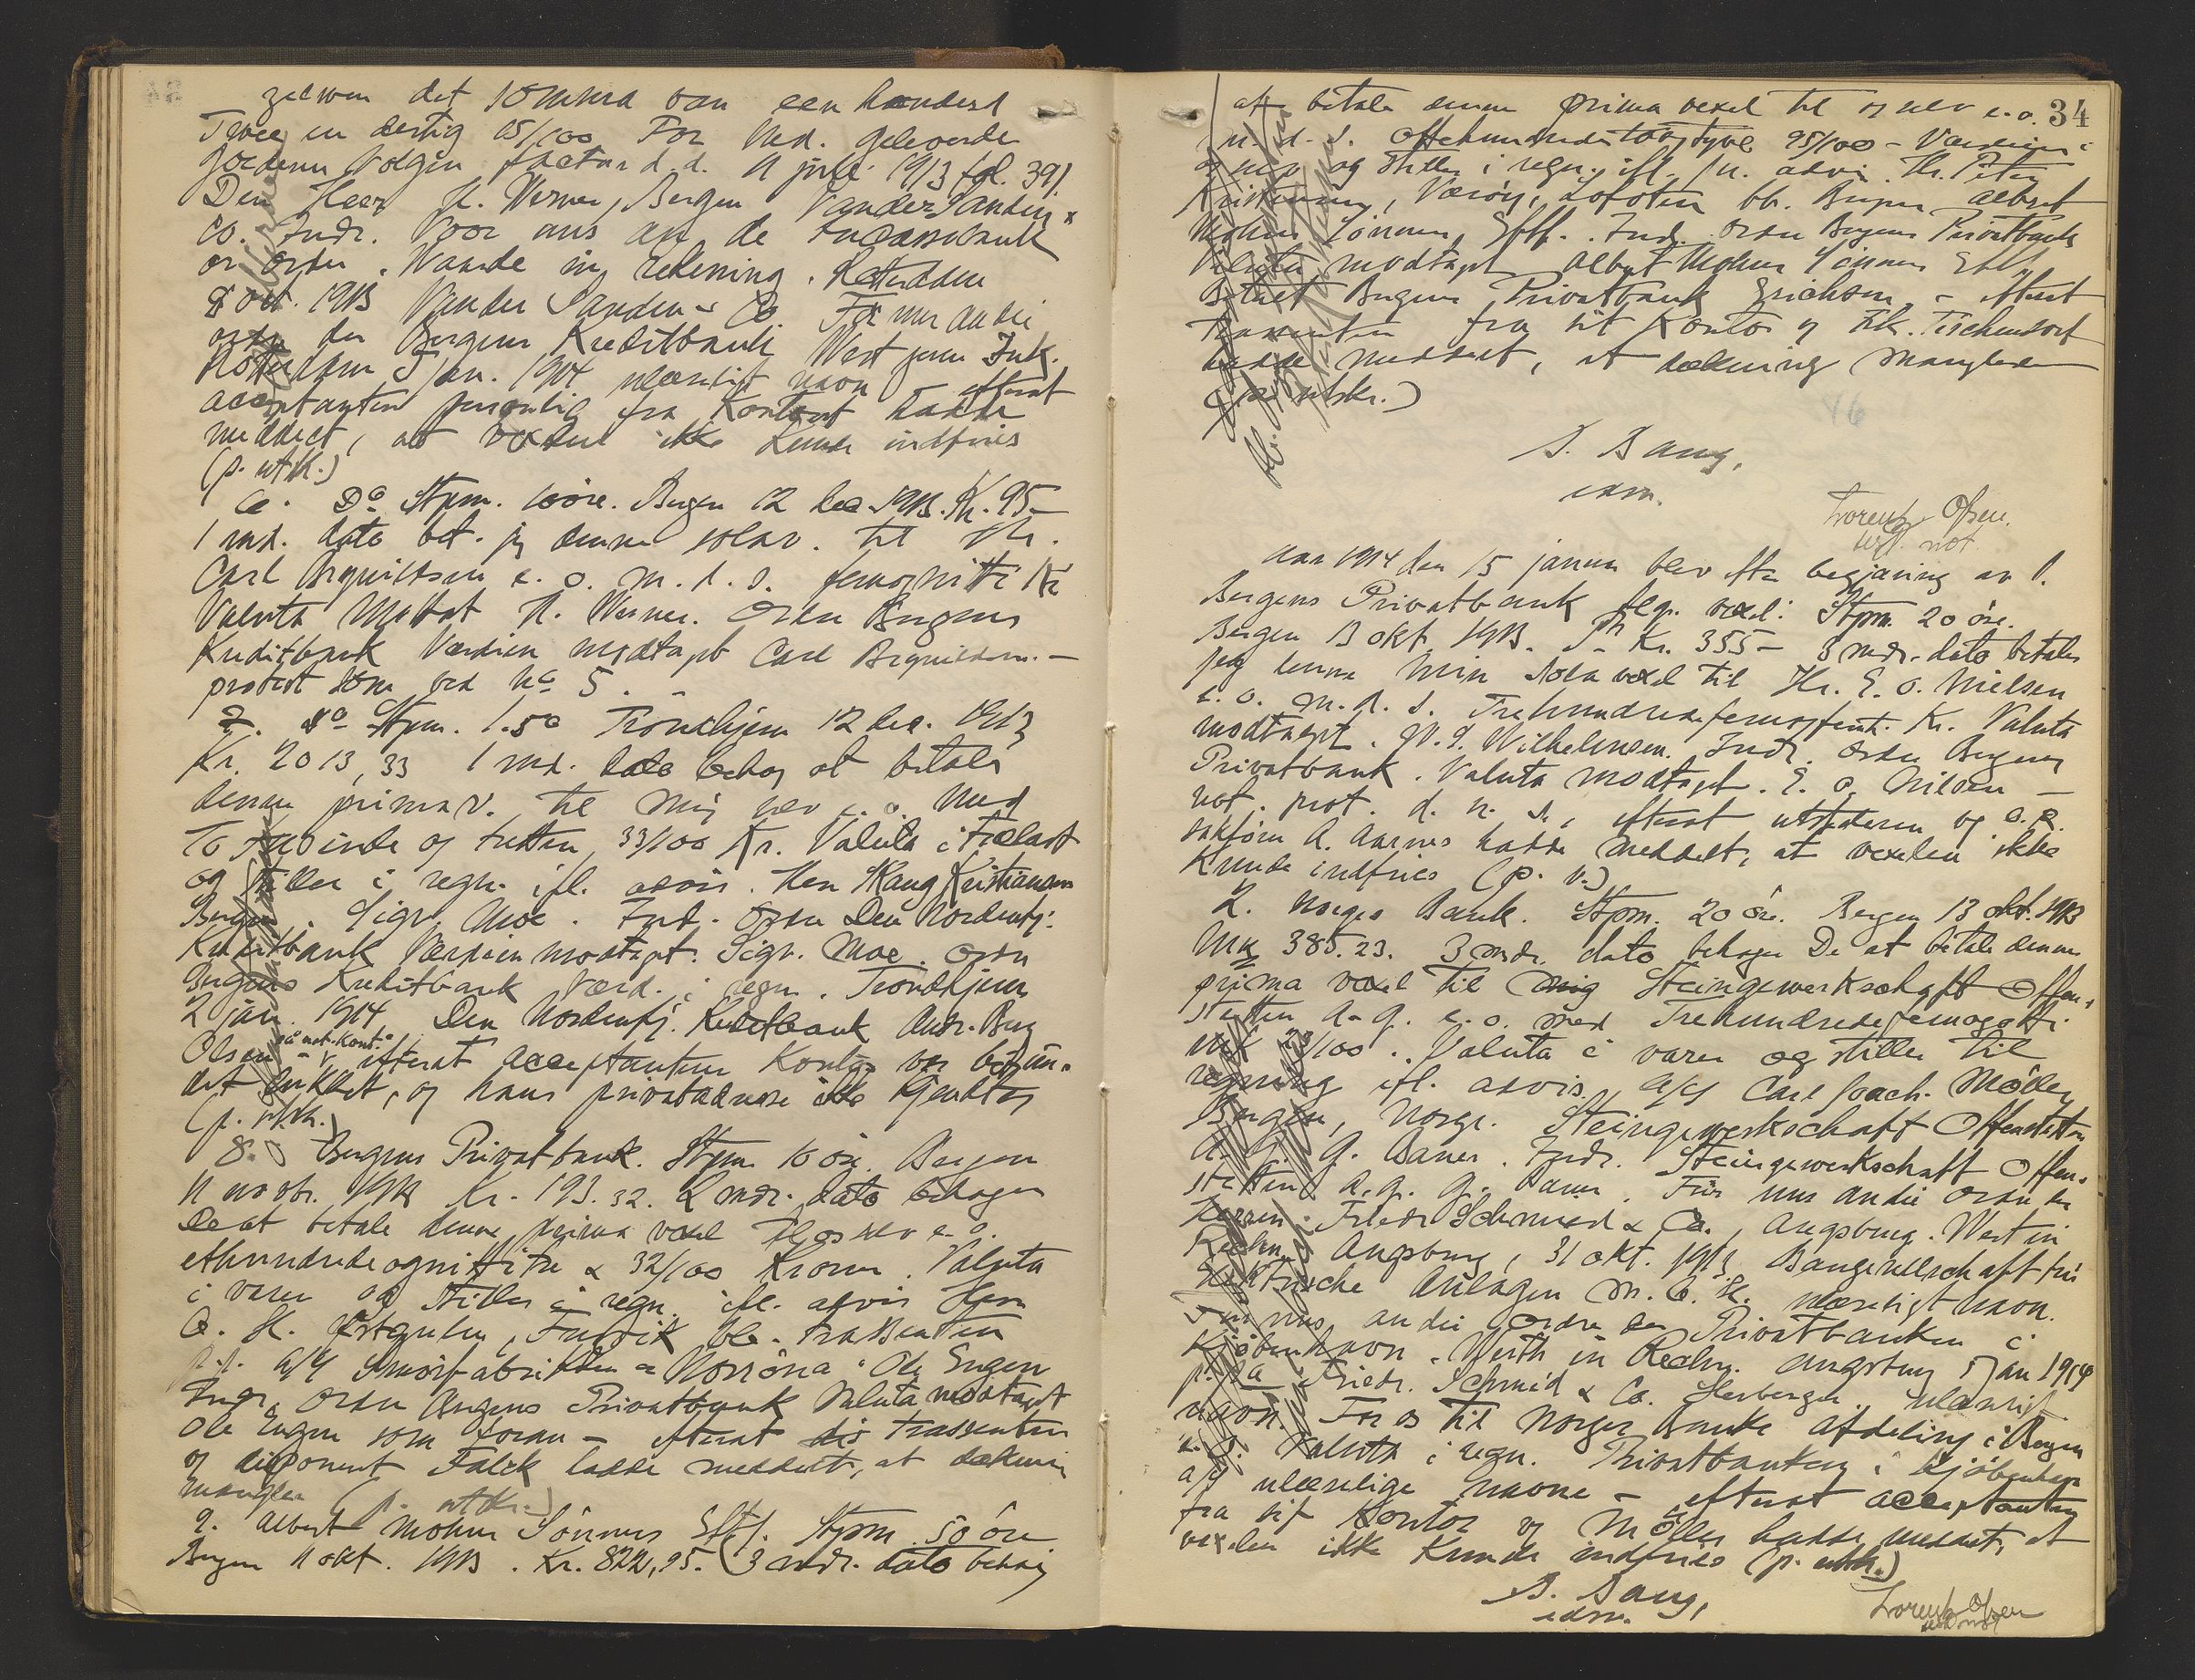 zelven det somma van een honderd
Twee en dertig 05/100 For Ned. geleverde
goederen volgen factur d.d. 11 juli 1913 fol. 391.
Den Heer H. Werner, Bergen Vander Sanden &
Co. Indr. Voor ons an de Incassobank
or order. Waarde in rekening. Rotterdam
8 okt. 1913 Vander Sanden & Co Für mir an die
order der Bergens Kreditbank Wert zum Ink.
Rotterdam 5 Jan. 1914 ulæseligt navn - efterat
acceptanten personlig fra Kontoret hadde
meddelt, at vexelen ikke kunde indfries
(p. utsk.)
6. Do Stpm. 10 öre. Bergen 12 dec. 1913. Kr. 95.-
1 md. dato bet. jeg denne solav. til Hr.
Carl Brynildsen e. o. m. d. s. femognitti Kr
Valuta Mottat H. Werner. Order Bergens
Kreditbank Værdien modtaget Carl Brynildsen. -
protest som ved No 5. -
7. Do Stpm. 1.50 Trondhjem 12 dec. 1913
Kr. 2013,33 1 md. dato behag at betale
denne prima v. til mig selv e. o. med
To tusinde og tretten 33/100 Kr. Valuta i Trælast
og stilles i regn. ifl. avis. Herr Haug Kristiansen
Bergen. Sigv. Moe. Ind. Order Den Nordenfj.
Kreditbank Værdien modtaget. Sigv. Moe. order
Bergens Kreditbank Værd. i regn. Trondhjem
2 jan. 1914 Den Nordenfj. Kreditbank Andr. Berg
Olsen - på not. kont. efterat acceptantens Kontor var befun-
det lukket, og hans privatadresse ikke kjendtes
(p. utsk.)
8. Bergens Privatbank. Stpm 10 öre. Bergen
11 novbr. 1913 Kr. 193.32. 2 mdr. dato behager
De at betale denne prima vexel til os selv e. o.
ethundredeognittitre & 32/100 Kroner. Valuta
i varer og stilles i regn. ifl. avis Herr
O. H. Östgulen, bb. trassenten
p.p. A/S Smörfabrikken "Norröna" Ole Engen
Indr. order Bergens Privatbank Valuta modtaget
Ole Engen som foran - efterat trassenten
og disponent Falck hadde meddelt, at dækning
mangler (p. utskr.)
9. Albert Mohns Sönners Eftf. Stpm 50 öre
Bergen 11 okt. 1913. Kr. 822,95. 3 mdr. dato behag
34
at betale denne prima vexel til os selv e. o.
m. d. s. Ottehundredetoogtyve 95/100 - Værdien i
og stilles i regn. ifl. avis. Hr. Peter
Kristensen, Væröy, Lofoten bb. Bergen Albert
Mohns Sönners Eftf. Ind. order Bergens Privatbank
Valuta modtaget Albert Mohns Sönners Eftf.
Betalt Bergens Privatbank Erichsen - efterat
trassenten fra sit Kontor og Hr. Tischendorf
hadde meddelt, at dækning manglede
(p. utskr.)
B. Bang,
edsv.
Lorentz Olsen.
Aar 1914 den 15 januar blev efter begjæring av 1.
Bergens Privatbank flg. vexel: Stpm 20 öre.
Bergen 13 okt. 1913. Kr. 355 - 3 mdr. dato betaler
jeg denne min Solavexel til Hr. E. O. Nielsen
e. o. m. d. s. Trehundredefemogfemti. Kr. Valuta
modtaget. W. J. Wilhelmsen. Indr. order Bergens
Privatbank. Valuta modtaget. E. O. Nilsen -
not. prot. d. n. s., efterat utstederen og o.r.
sakförer A. Aarnes hadde meddelt, at vexelen ikke
kunde indfries (p. v.)
2. Norges Bank. Stpm. 20 öre. Bergen 13 okt. 1913
Mk 385.23. 3 mdr. dato behager De at betale denne
prima vexel til mig Steingewerkschaft Offen-
stetten A. G. e. o. med Trehundredefemogotti
Mk 23/100. Valuta i varer og stilles til
regning ifl. advis. A/S Carl Joach. Möller
Bergen, Norge. Steingewerkschaft Offenstetten
A. G. G. Bauer. Indr. Steingewerkschaft Offen-
stetten A. G. G. Bauer. Für uns an die order der
Herren Friedr. Schmid & Co., Augsburg. Wert in
Rechn. Augsburg, 31 okt. 1913 Baugesellschaft für
elektrische Anlagen m. b. H. ulæseligt navn.
Für uns an die Ordre der Privatbanken i
Kjöbenhavn. Werth in Rechn. Augsburg 5 Jan 1914
p. pa Friedr. Schmid & Co. Herberger ulæseligt
navn. For os til Norges Banks Afdeling i Bergen
Valuta i regn. Privatbanken i Kjöbenhavn
a/s ulæselige navne - efterat acceptanten
fra sit Kontor og Möller hadde meddelt, at
vexelen ikke kunde indfries (p. utskr.)
B. Bang,
edsv.
Lorentz Olsen